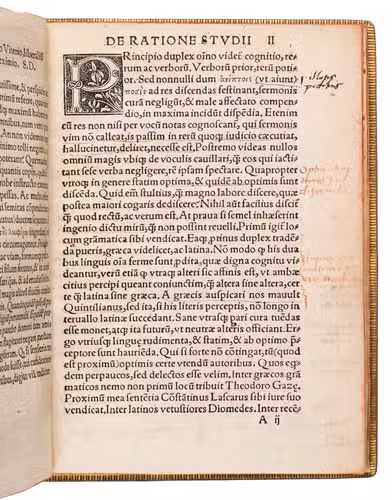 DE RATIONE STVDII II
PRincipio duplex oĩno videt̃ cognitio, re
rum ac verborũ, Verborũ prior, rerũ poti
or. Sed nonnulli dum ἀνίπτοις (vt aiunt)
ποσὶν ad res discendas festinant, sermonis
curã negligũt, & male affectato compen
dio, in maxima incidũt dispẽdia, Etenim
cũ res non nisi per vocũ notas cognoscant̃, qui sermonis
vim nõ calleat, is passim in rerũ quoq; iudicio cæcutiat,
hallucinetur, deliret, necesse est. Postremo videas nullos
omniũ magis vbiq; de voculis cauillari, q̃ eos qui iacti
tant sese verba negligere, rẽ ipsam spectare. Quapropter
vtroq; in genere statim optima, & quidẽ ab optimis sunt
discẽda. Quid em̃ stultius, q̃ magno labore discere, quæ
postea maiori cogaris dediscere? Nihil aũt facilius discit̃
q̃ quod rectũ, ac verum est, At praua si semel inhæserint
ingenio dictu mirũ, q̃ non possint reuelli. Primũ igit̃ lo
cum grãmatica sibi vendicat. Eaq; p̃tinus duplex tradẽ
da pueris, græca videlicet, ac latina. Nõ modo q̃ his dua
bus linguis oĩa ferme sunt p̃dita, quæ digna cognitu vi
deantur, verũ etiã q̃ vtraq; alteri sic affinis est, vt ambæ
citius percipi queant coniunctim, q̃ altera sine altera, cer
te q̃ latina sine græca. A græcis auspicari nos mauult
Quintilianus, sed ita, si his literis perceptis, nõ longo in
teruallo latinæ succedant. Sane vtrasq; pari cura tuẽdas
esse monet, atq; ita futurũ, vt neutræ alteris officiant. Er
go vtriusq; linguæ rudimenta, & statim, & ab optimo p̃
ceptore sunt hauriẽda. Qui si forte nõ cõtingat, tũ (quod
est proximũ) optimis certe vtendũ autoribus. Quos eq̃
dem perpaucos, sed delectos esse velim, Inter græcos grã
maticos nemo non primũ locũ tribuit Theodoro Gazę.
Proximũ mea sentẽtia Cõstãtinus Lascarus sibi iure suo
vendicat, Inter latinos vetustiores Diomedes. Inter recẽ
A ij